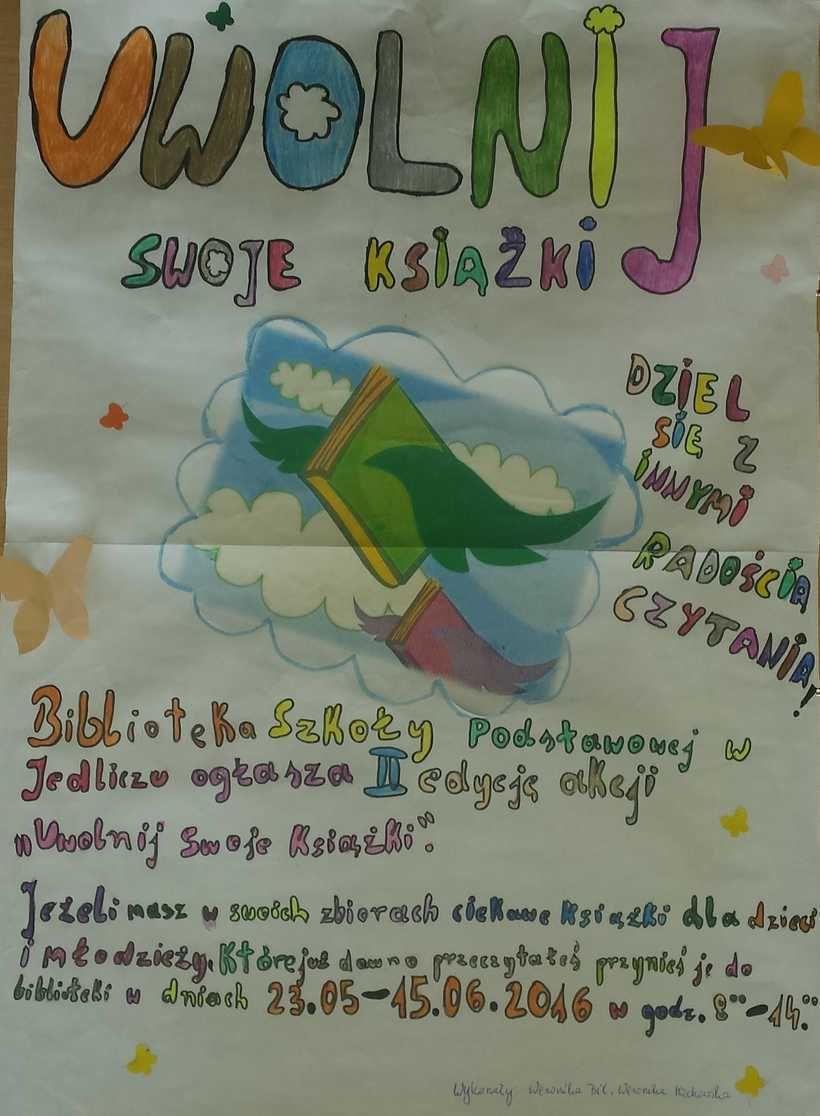 UWOLNIJ
SWOJE KSIĄŻKI
DZIEL
SIĘ Z
INNYMI
RADOŚCIĄ
CZYTANIA!
Biblioteka Szkoły Podstawowej w
Jedliczu ogłasza II edycję akcji
„Uwolnij Swoje Książki”.
Jeżeli masz w swoich zbiorach ciekawe książki dla dzieci
i młodzieży, które już dawno przeczytałeś przynieś je do
biblioteki w dniach 23.05-15.06.2016 w godz. 8°°-14°°
Wykonały Weronika Weronika